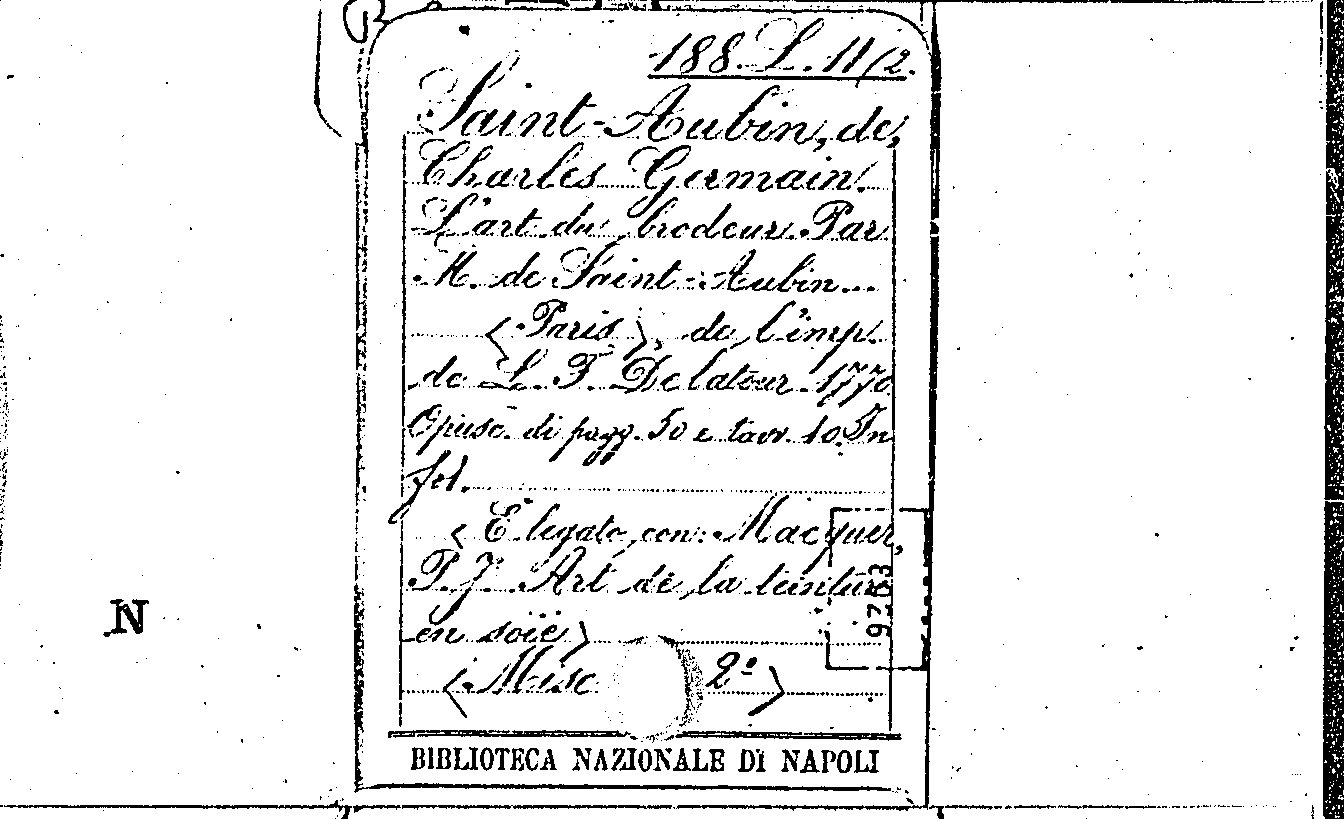 188. L. 11/2.
Saint-Aubin, de,
Charles Germain.
L'art du brodeur. Par
M. de Saint-Aubin...
<Paris>, de l'imp.
de L. F. Delatour 1770
Opusc. di pagg. 50 e tavv. 10. In
fol.
<È legato con: Macquer,
P. J. Art de la teinture
en soie>
<Misc 2º>
9203
N
BIBLIOTECA NAZIONALE DI NAPOLI